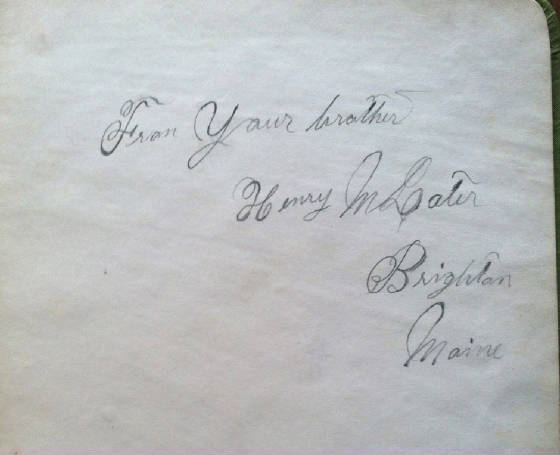 From Your brother
Henry M Cater
Brighton
Maine